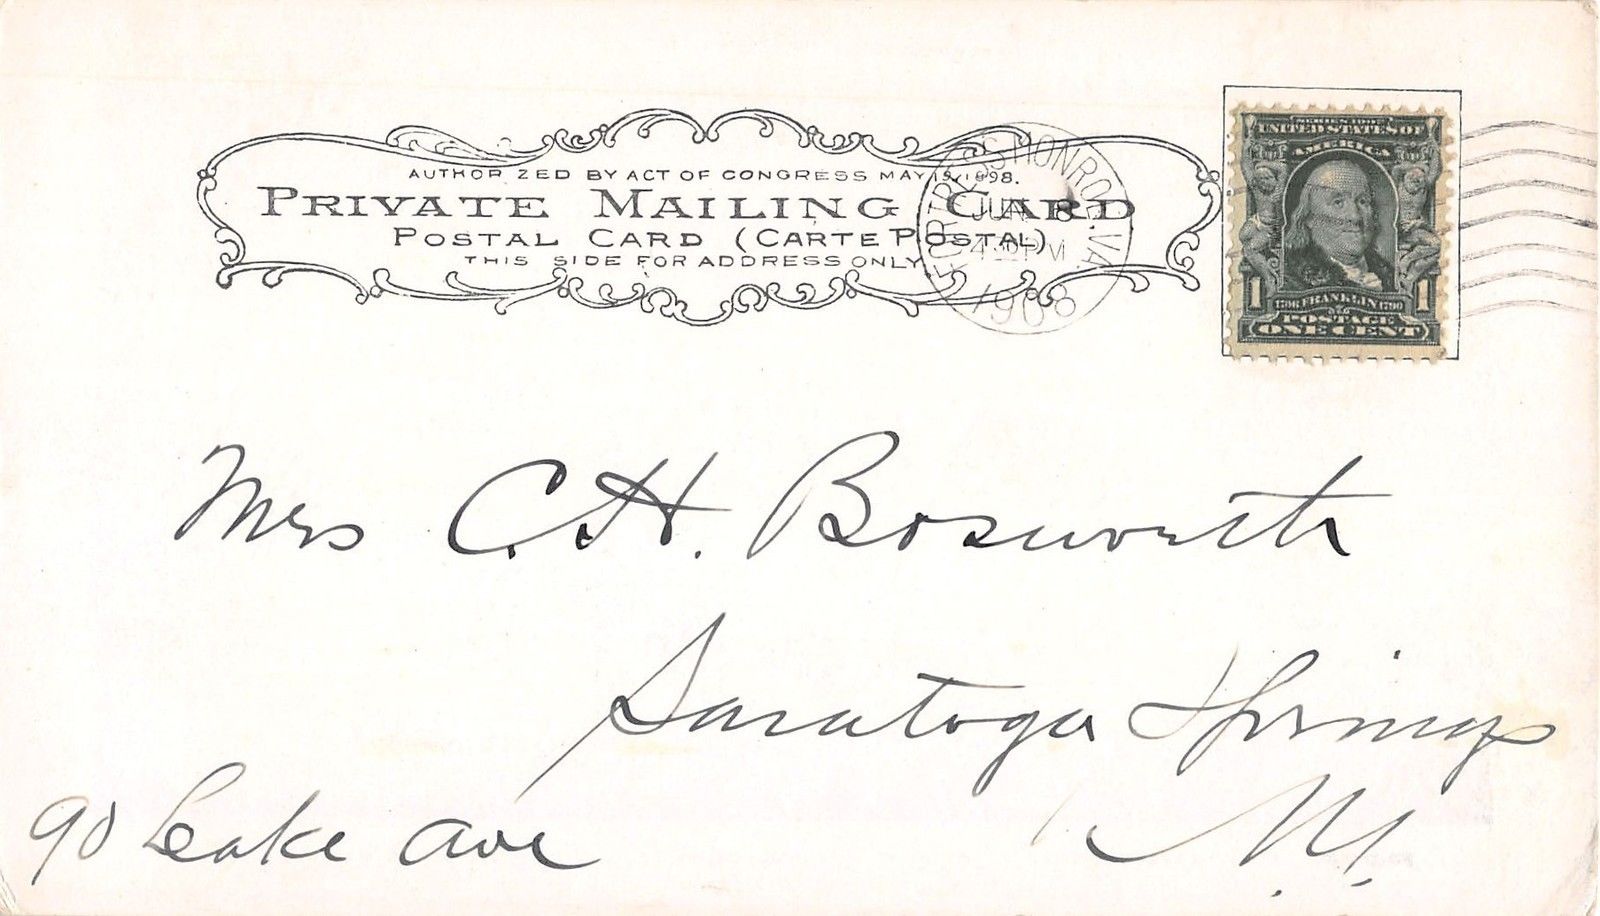 AUTHOR ZED BY ACT OF CONGRESS MAY 19, 1898.
PRIVATE MAILING CARD
POSTAL CARD (CARTE POSTAL)
THIS SIDE FOR ADDRESS ONLY.
FORTRESS MONROE, VA.
JUN 8
4 PM
1908
SERIES 1902
UNITED STATES OF
AMERICA
1706 FRANKLIN 1790
POSTAGE
1 ONE CENT 1
Mrs C. H. Bosworth
Saratoga Springs
90 Lake Ave
N.Y.